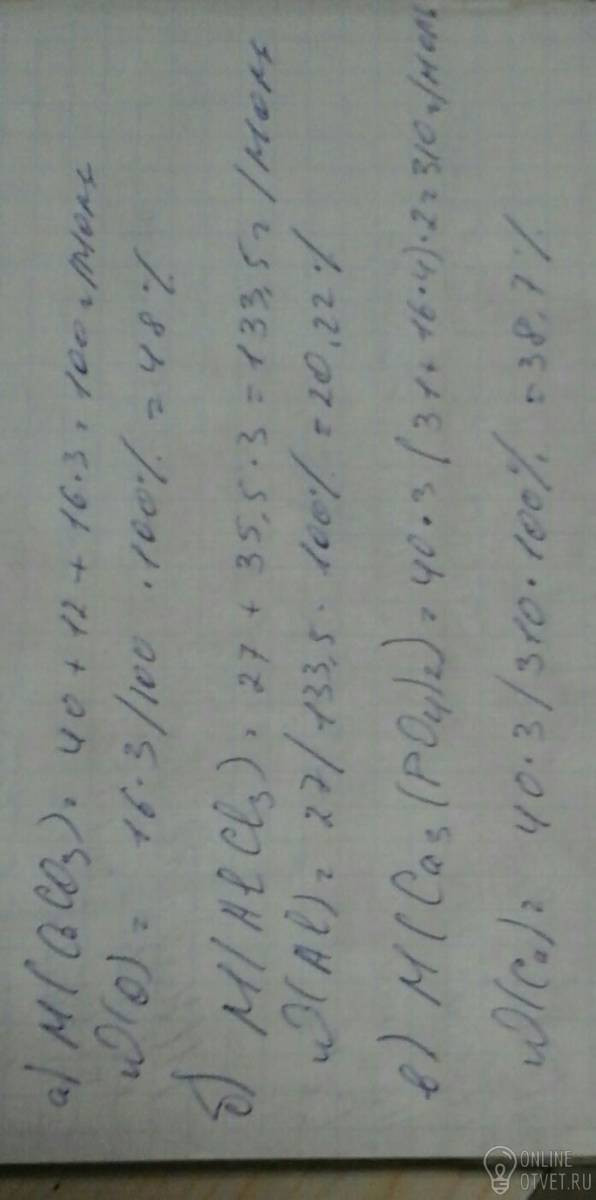 а) M(CaCO3)= 40+12+16·3=100г/моль
ω(O)= 16·3/100 ·100%=48%
б) M(AlCl3)=27+35,5·3=133,5г/моль
ω(Al)=27/133,5·100%=20,22%
в) M(Ca3(PO4)2)=40·3(31+16·4)·2=310г/моль
ω(Ca)= 40·3/310·100%=38,7%
ONLINE
OTVET.RU